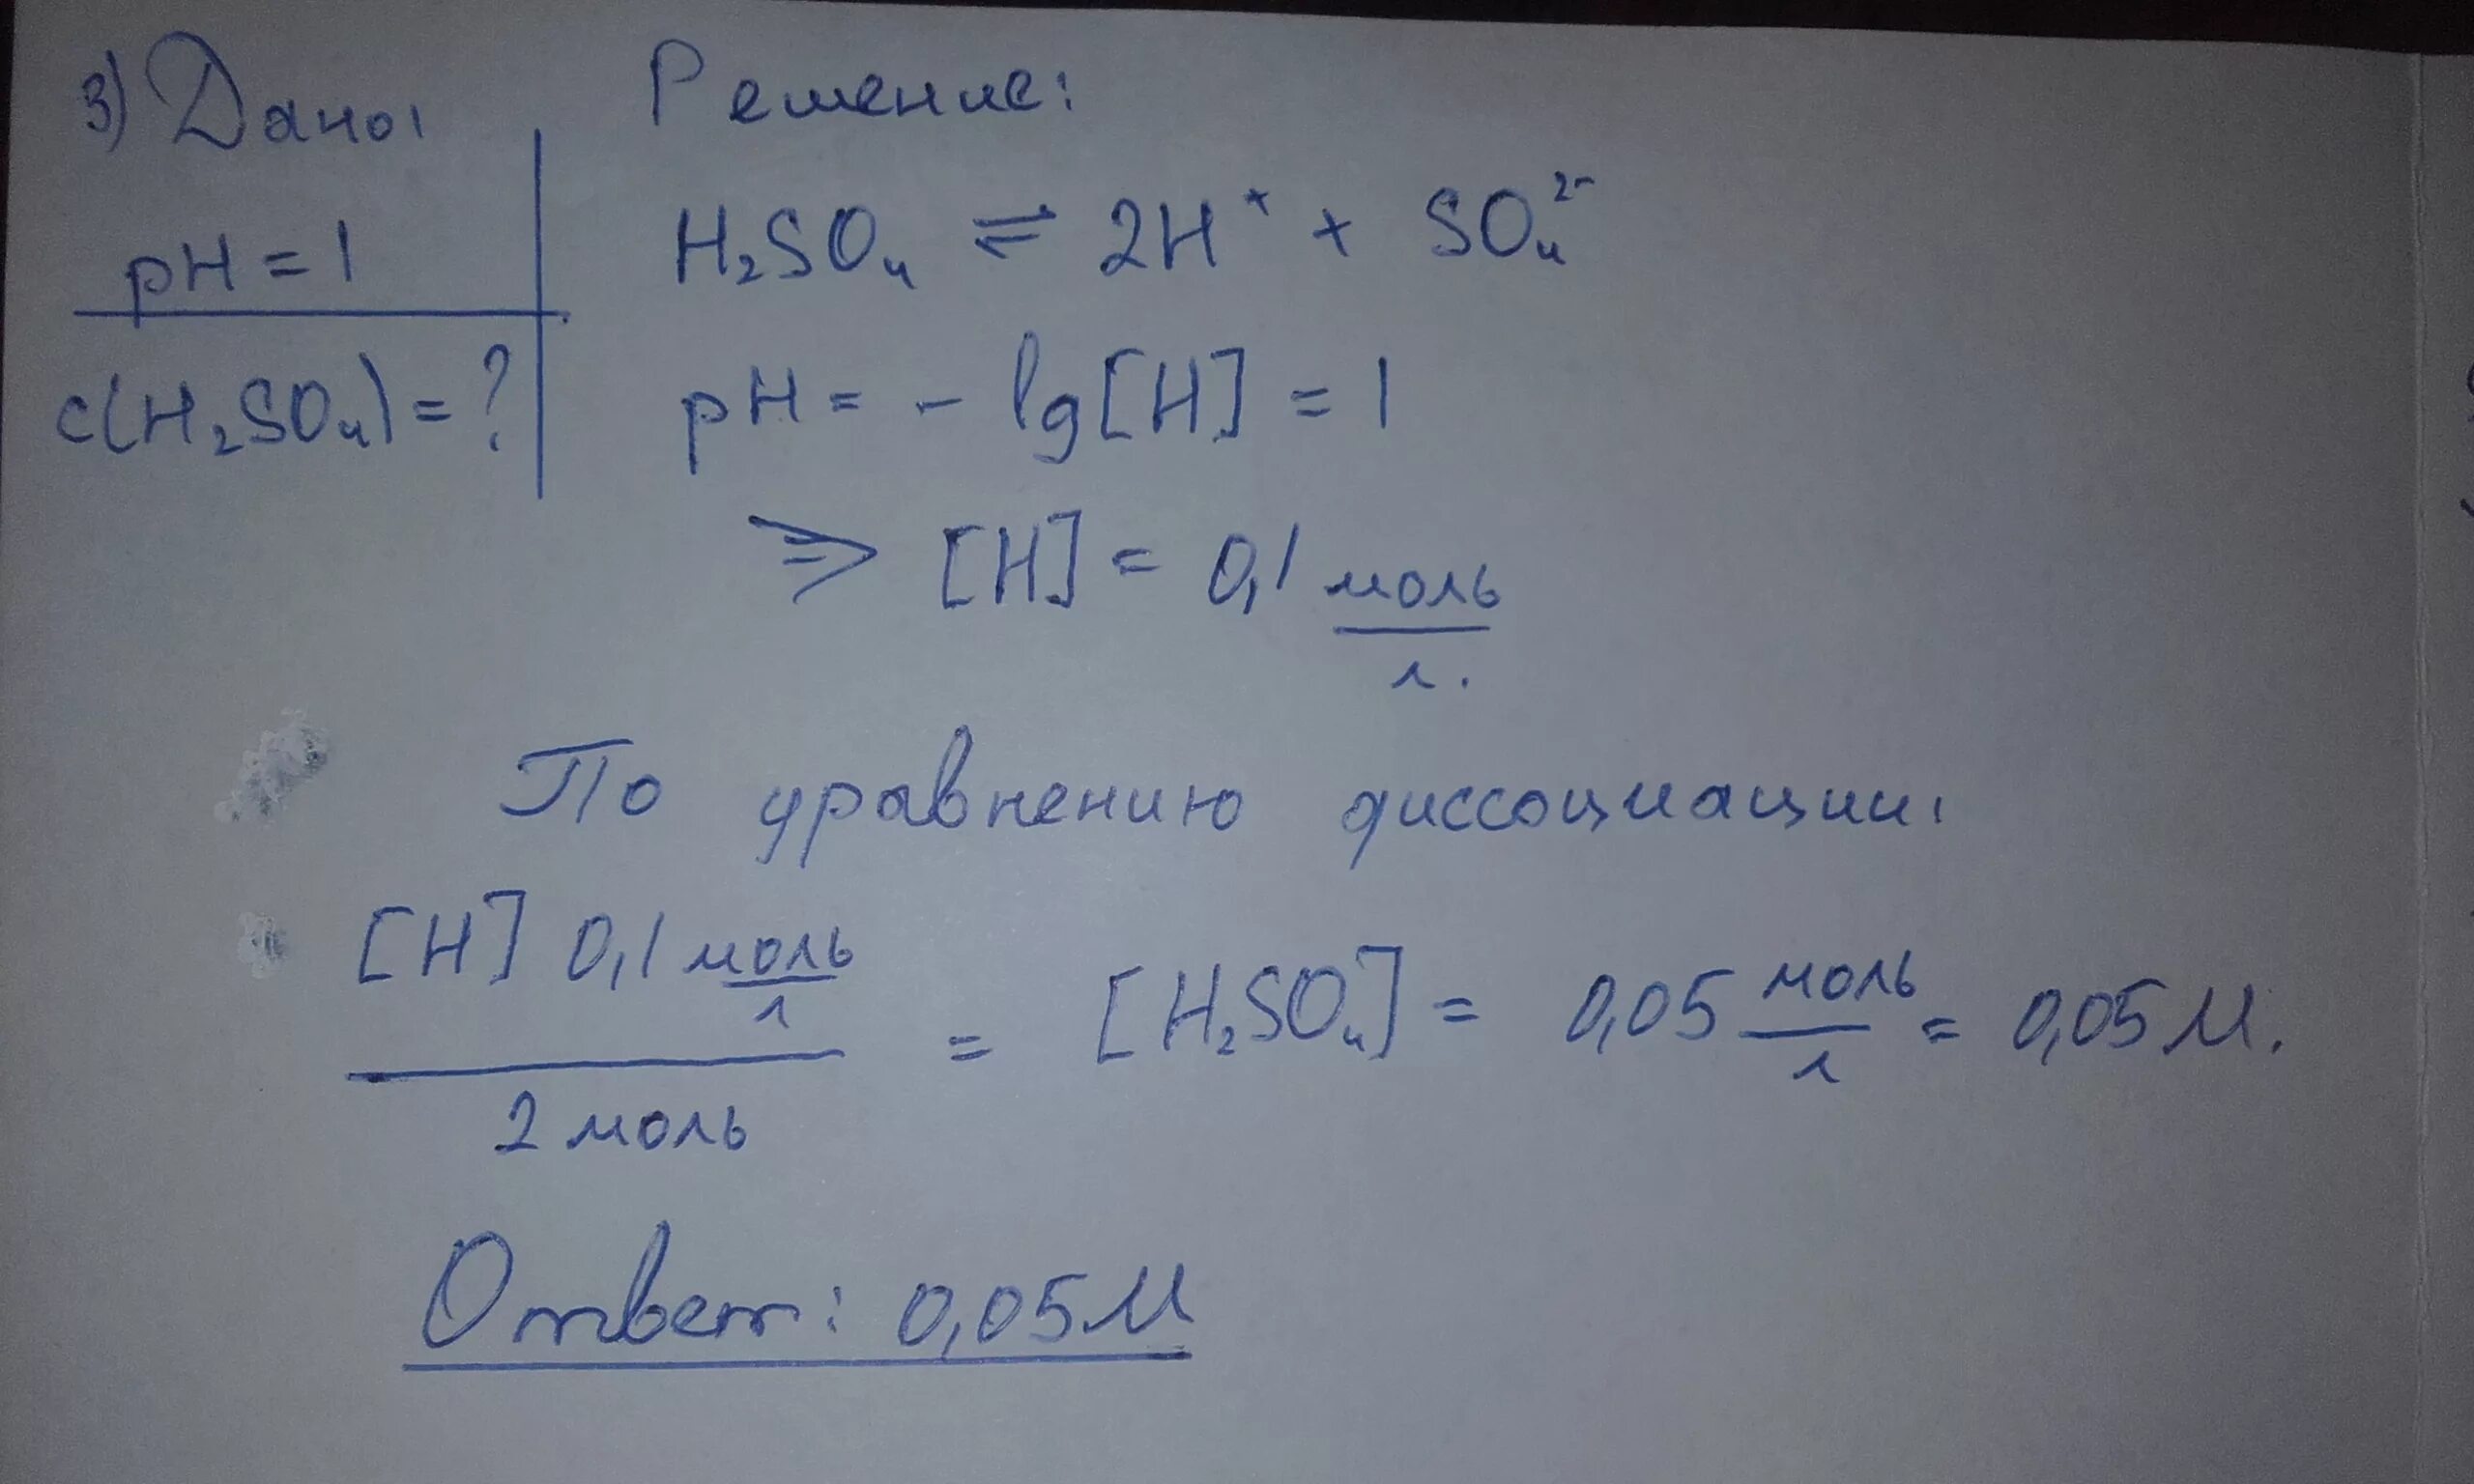 3) Дано:
pH = 1
c(H₂SO₄) = ?
Решение:
H₂SO₄ ⇌ 2H⁺ + SO₄²⁻
pH = - lg[H] = 1
⇒ [H] = 0,1 моль/л.
По уравнению диссоциации:
[H] 0,1 моль/л / 2 моль = [H₂SO₄] = 0,05 моль/л = 0,05 М.
Ответ: 0,05 М